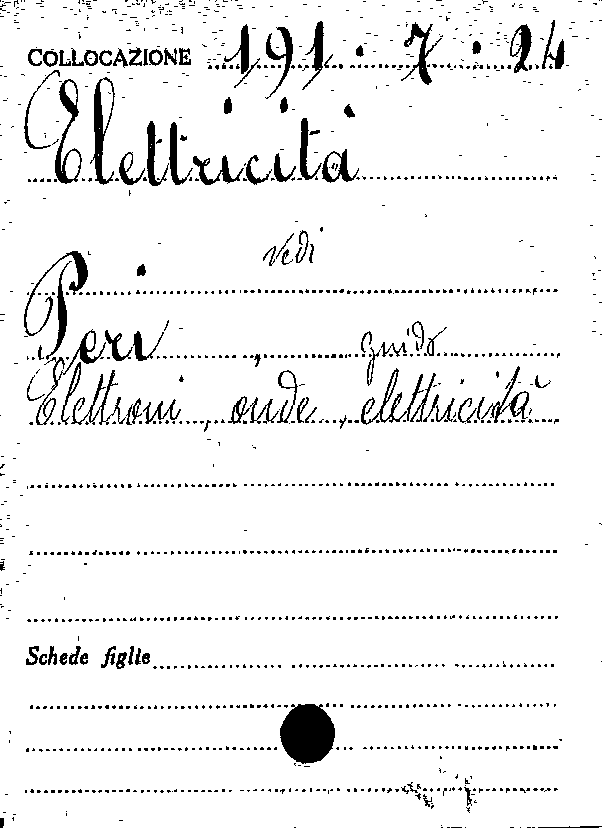 COLLOCAZIONE 191 · 7 · 24
Elettricità
vedi
Peri, guido
Elettroni, onde, elettricità
Schede figlie